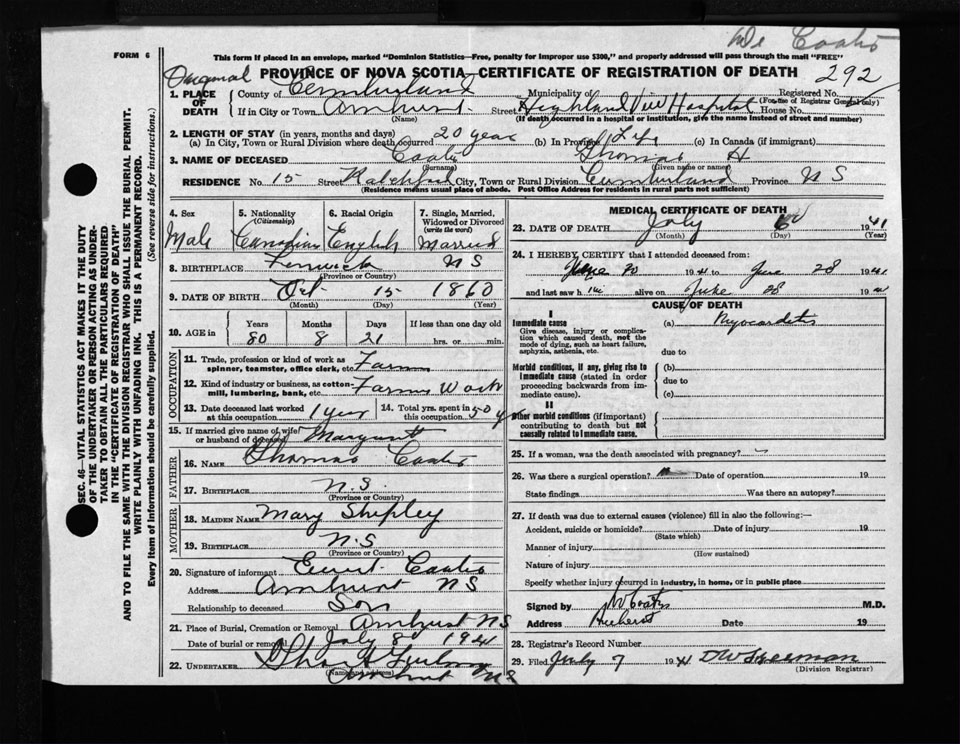 Dr Coates
FORM 6
This form if placed in an envelope, marked "Dominion Statistics—Free, penalty for improper use $300," and properly addressed will pass through the mail "FREE"
Original PROVINCE OF NOVA SCOTIA—CERTIFICATE OF REGISTRATION OF DEATH 292
1. PLACE OF DEATH County of Cumberland Municipality of Registered No.
(For use of Registrar General only)
If in City or Town Amherst Street Highland View Hospital House No.
(Name) (If death occurred in a hospital or institution, give the name instead of street and number)
2. LENGTH OF STAY (in years, months and days)
(a) In City, Town or Rural Division where death occurred 20 years (b) In Province Life (c) In Canada (if immigrant)
3. NAME OF DECEASED Coates Thomas H
(Surname) (Given name or names)
RESIDENCE No. 15 Street City, Town or Rural Division Cumberland Province N S
(Residence means usual place of abode. Post Office Address for residents in rural parts not sufficient)
4. Sex 5. Nationality 6. Racial Origin 7. Single, Married, Widowed or Divorced
(Citizenship) (write the word)
Male Canadian English Married
8. BIRTHPLACE Fenwick N S
(Province or Country)
9. DATE OF BIRTH Oct 15 1860
(Month) (Day) (Year)
10. AGE in Years Months Days If less than one day old
80 8 21 hrs. or min.
OCCUPATION
11. Trade, profession or kind of work as spinner, teamster, office clerk, etc. Farm
12. Kind of industry or business, as cotton-mill, lumbering, bank, etc. Farm Work
13. Date deceased last worked at this occupation 1 year 14. Total yrs. spent in this occupation 50 y
15. If married give name of wife or husband of deceased Margaret
FATHER
16. NAME Thomas Coates
17. BIRTHPLACE N.S.
(Province or Country)
MOTHER
18. MAIDEN NAME Mary Shipley
19. BIRTHPLACE N.S
(Province or Country)
20. Signature of informant Coates
Address Amherst N S
Relationship to deceased Son
21. Place of Burial, Cremation or Removal Amherst N S
Date of burial or removal July 8 1941
22. UNDERTAKER
(Name and address) Amherst N S
MEDICAL CERTIFICATE OF DEATH
23. DATE OF DEATH July 6 1941
(Month) (Day) (Year)
24. I HEREBY CERTIFY that I attended deceased from:
June 20 1941 to June 28 1941
and last saw him alive on June 28 1941
CAUSE OF DEATH
I
Immediate cause (a) Myocarditis
Give disease, injury or complication which caused death, not the mode of dying, such as heart failure, asphyxia, asthenia, etc.
due to
Morbid conditions, if any, giving rise to immediate cause (stated in order proceeding backwards from immediate cause).
(b)
due to
(c)
II
Other morbid conditions (if important) contributing to death but not causally related to immediate cause.
25. If a woman, was the death associated with pregnancy?
26. Was there a surgical operation? Date of operation 19
State findings Was there an autopsy?
27. If death was due to external causes (violence) fill in also the following:—
Accident, suicide or homicide? Date of injury 19
(State which)
Manner of injury
(How sustained)
Nature of injury
Specify whether injury occurred in industry, in home, or in public place
Signed by Coates M.D.
Address Amherst Date 19
28. Registrar's Record Number
29. Filed July 7 1941
(Division Registrar)
SEC. 46—VITAL STATISTICS ACT MAKES IT THE DUTY
OF THE UNDERTAKER OR PERSON ACTING AS UNDER-
TAKER TO OBTAIN ALL THE PARTICULARS REQUIRED
IN THE "CERTIFICATE OF REGISTRATION OF DEATH"
AND TO FILE THE SAME WITH THE DIVISION REGISTRAR WHO SHALL ISSUE THE BURIAL PERMIT.
WRITE PLAINLY WITH UNFADING INK. THIS IS A PERMANENT RECORD.
Every item of information should be carefully supplied. (See reverse side for instructions.)